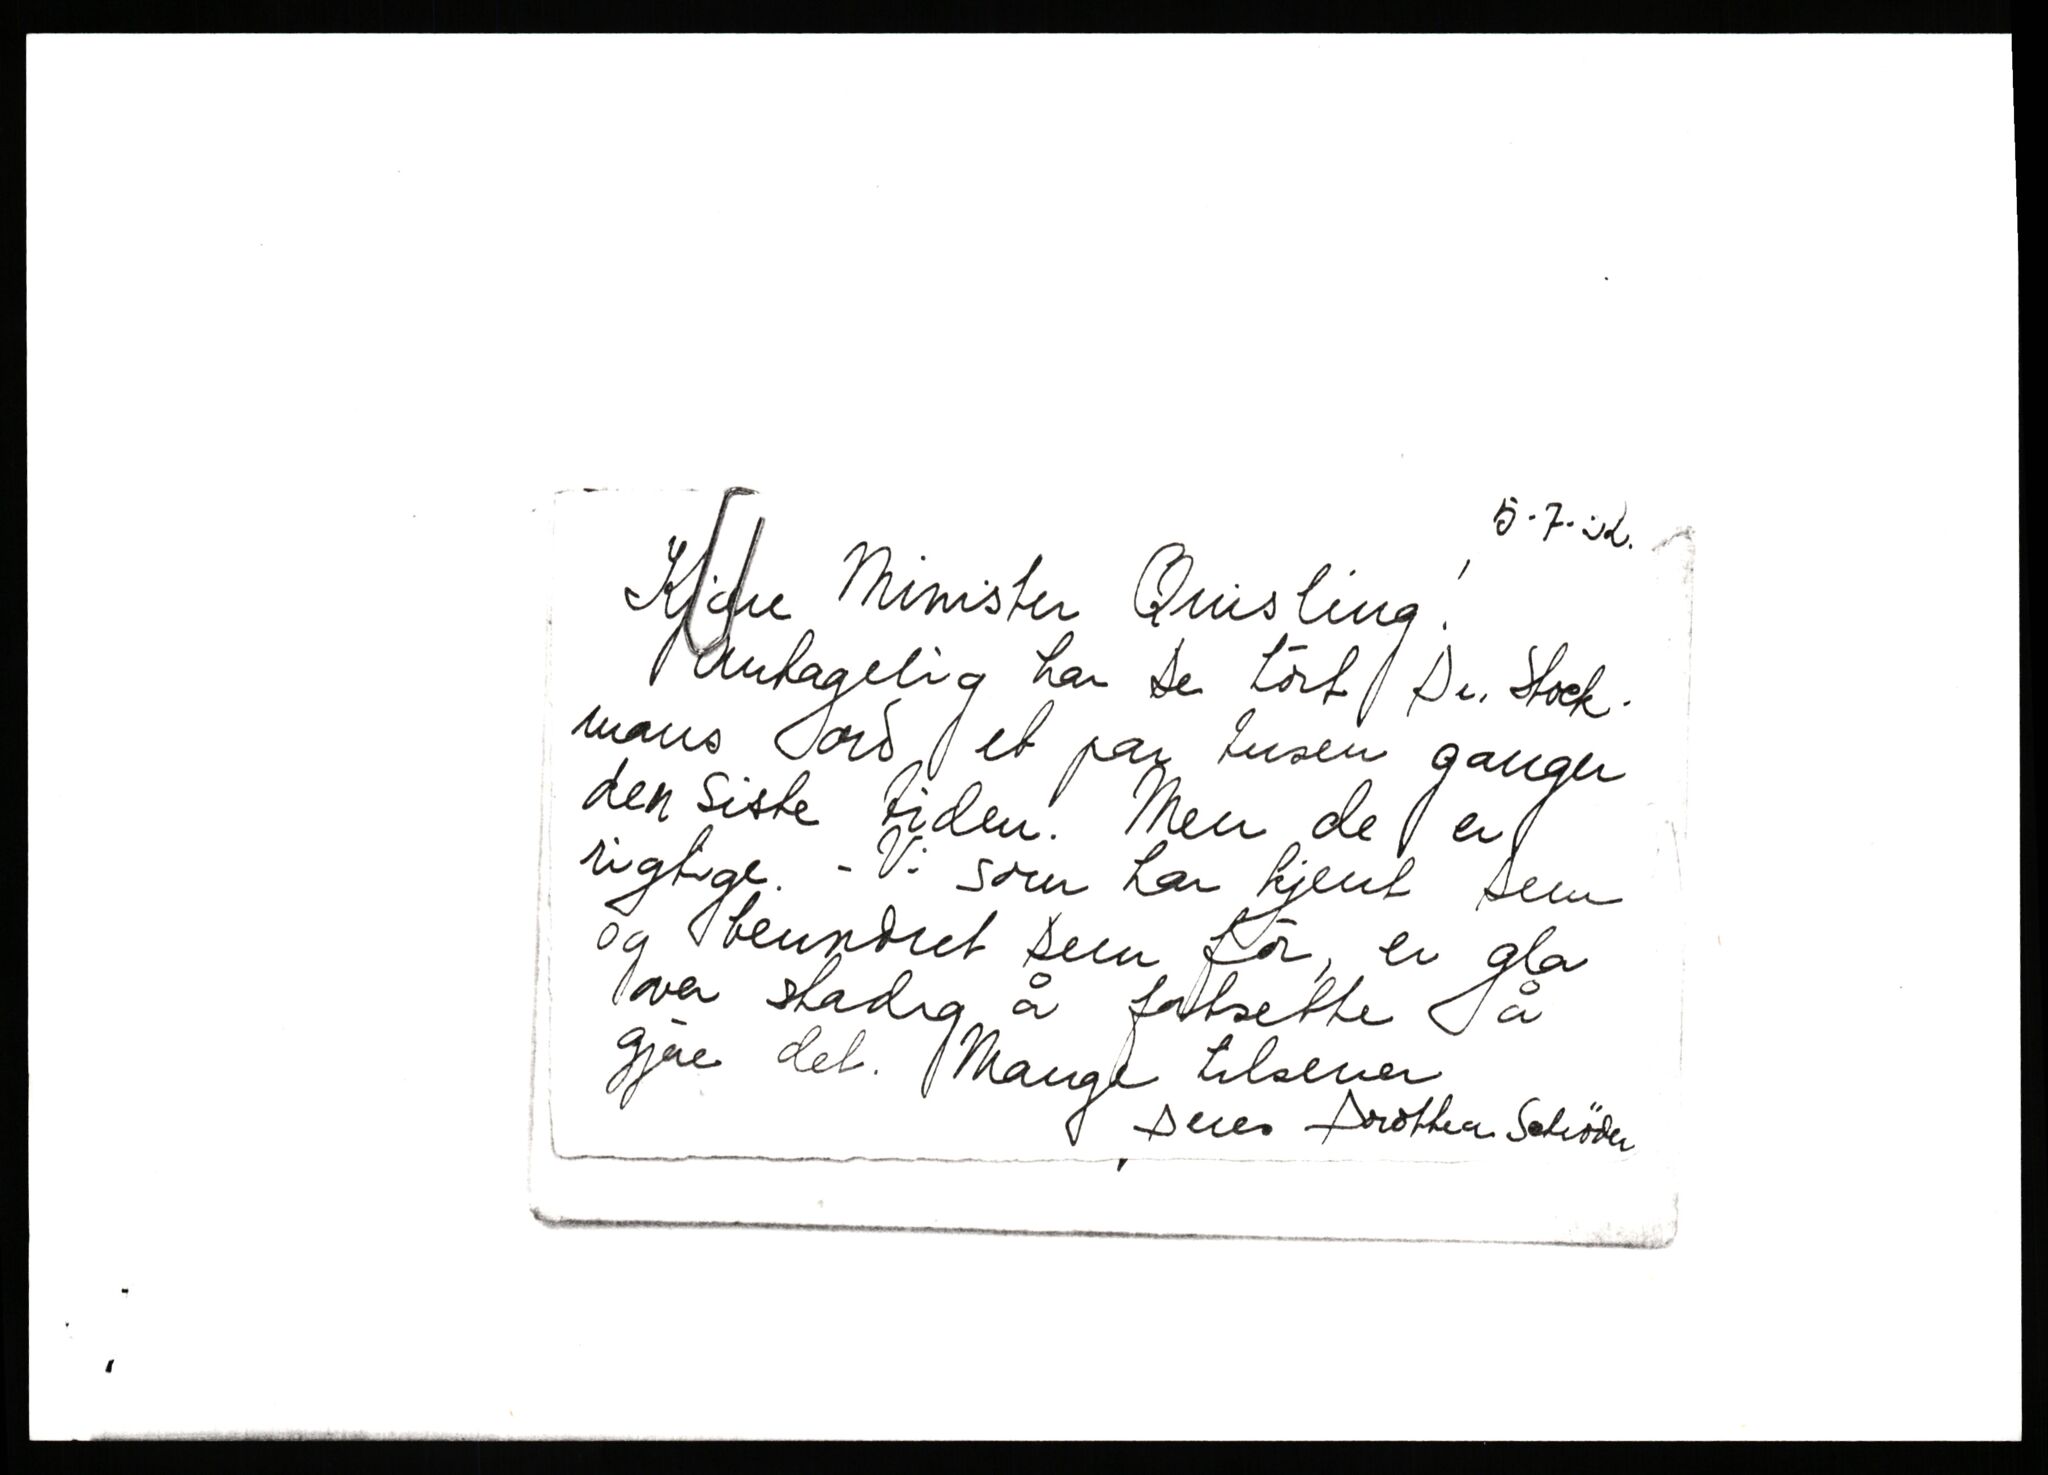 5.-7.-32.
Kjære Minister Quisling!
Antagelig har De hört Dr. Stock-
mans ord et par tusen ganger
den siste tiden. Men de er
rigtige. - Vi som har kjent Dem
og beundret Dem för, er gla
over stadig å fortsette å
gjøre det. Mange hilsener
Deres Dorothea Schröder